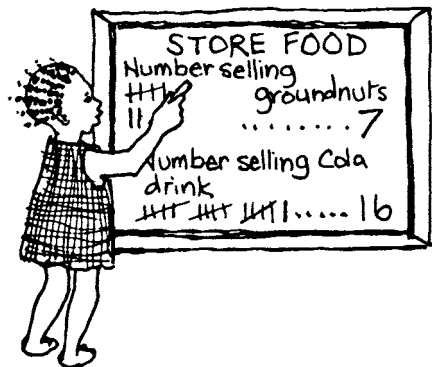 STORE FOOD
Number selling
groundnuts
||.........7
Number selling Cola
drink
|||| |||| |||||.....16